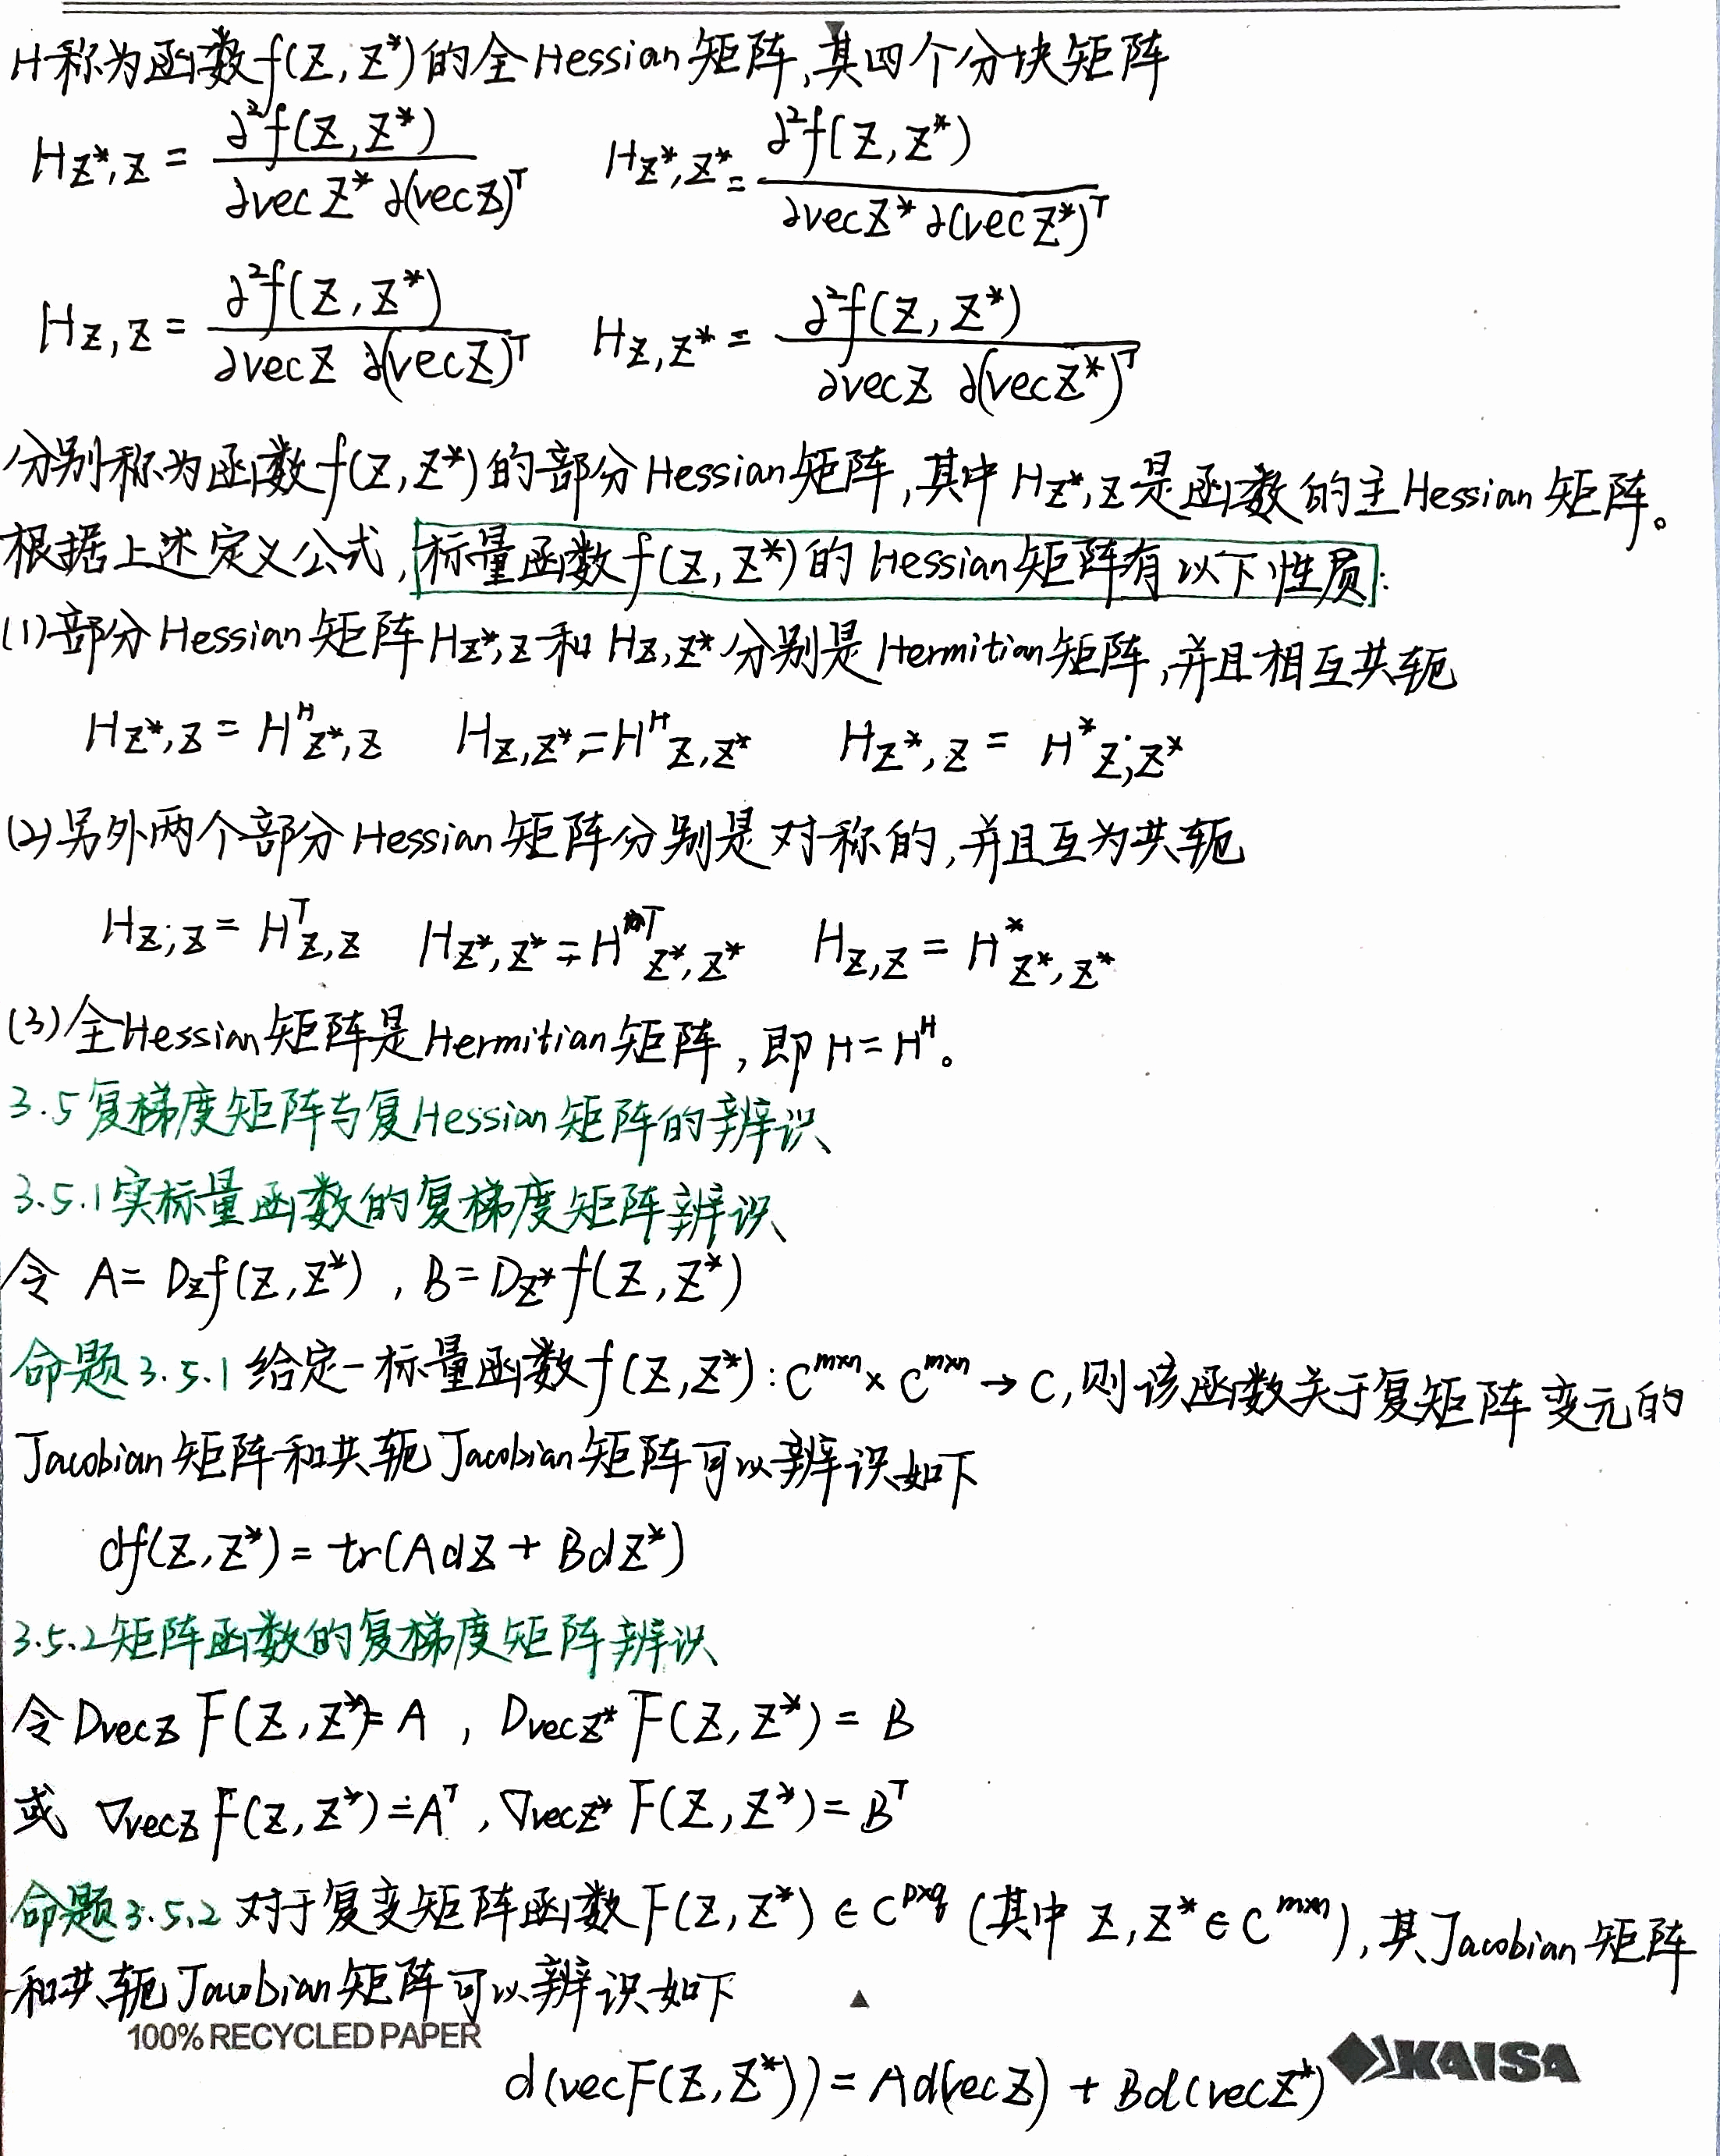 H称为函数f(Z, Z*)的全Hessian矩阵,其四个分块矩阵
H_{Z*,Z} = ∂²f(Z, Z*) / ∂vec Z* ∂(vec Z)^T    H_{Z*,Z*} = ∂²f(Z, Z*) / ∂vec Z* ∂(vec Z*)^T
H_{Z,Z} = ∂²f(Z, Z*) / ∂vec Z ∂(vec Z)^T    H_{Z,Z*} = ∂²f(Z, Z*) / ∂vec Z ∂(vec Z*)^T
分别称为函数f(Z, Z*)的部分Hessian矩阵,其中H_{Z*,Z}是函数的主Hessian矩阵。
根据上述定义公式,标量函数f(Z, Z*)的Hessian矩阵有以下性质:
(1)部分Hessian矩阵H_{Z*,Z}和H_{Z,Z*}分别是Hermitian矩阵,并且相互共轭
H_{Z*,Z} = H^H_{Z*,Z}    H_{Z,Z*} = H^H_{Z,Z*}    H_{Z*,Z} = H^*_{Z,Z*}
(2)另外两个部分Hessian矩阵分别是对称的,并且互为共轭
H_{Z,Z} = H^T_{Z,Z}    H_{Z*,Z*} = H^T_{Z*,Z*}    H_{Z,Z} = H^*_{Z*,Z*}
(3)全Hessian矩阵是Hermitian矩阵,即H = H^H。
3.5 复梯度矩阵与复Hessian矩阵的辨识
3.5.1 实标量函数的复梯度矩阵辨识
令 A = D_Z f(Z, Z*), B = D_{Z*} f(Z, Z*)
命题3.5.1 给定一标量函数f(Z, Z*): C^{m×n} × C^{m×n} → C,则该函数关于复矩阵变元的
Jacobian矩阵和共轭Jacobian矩阵可以辨识如下
df(Z, Z*) = tr(AdZ + BdZ*)
3.5.2 矩阵函数的复梯度矩阵辨识
令 D_{vec Z} F(Z, Z*) = A, D_{vec Z*} F(Z, Z*) = B
或 ∇_{vec Z} F(Z, Z*) = A^T, ∇_{vec Z*} F(Z, Z*) = B^T
命题3.5.2 对于复变矩阵函数F(Z, Z*) ∈ C^{p×q} (其中 Z, Z* ∈ C^{m×n}),其Jacobian矩阵
和共轭Jacobian矩阵可以辨识如下
100% RECYCLED PAPER
KAISA
d(vec F(Z, Z*)) = Ad(vec Z) + Bd(vec Z*)